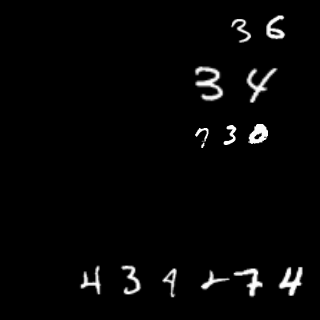 36
34
730
434-74